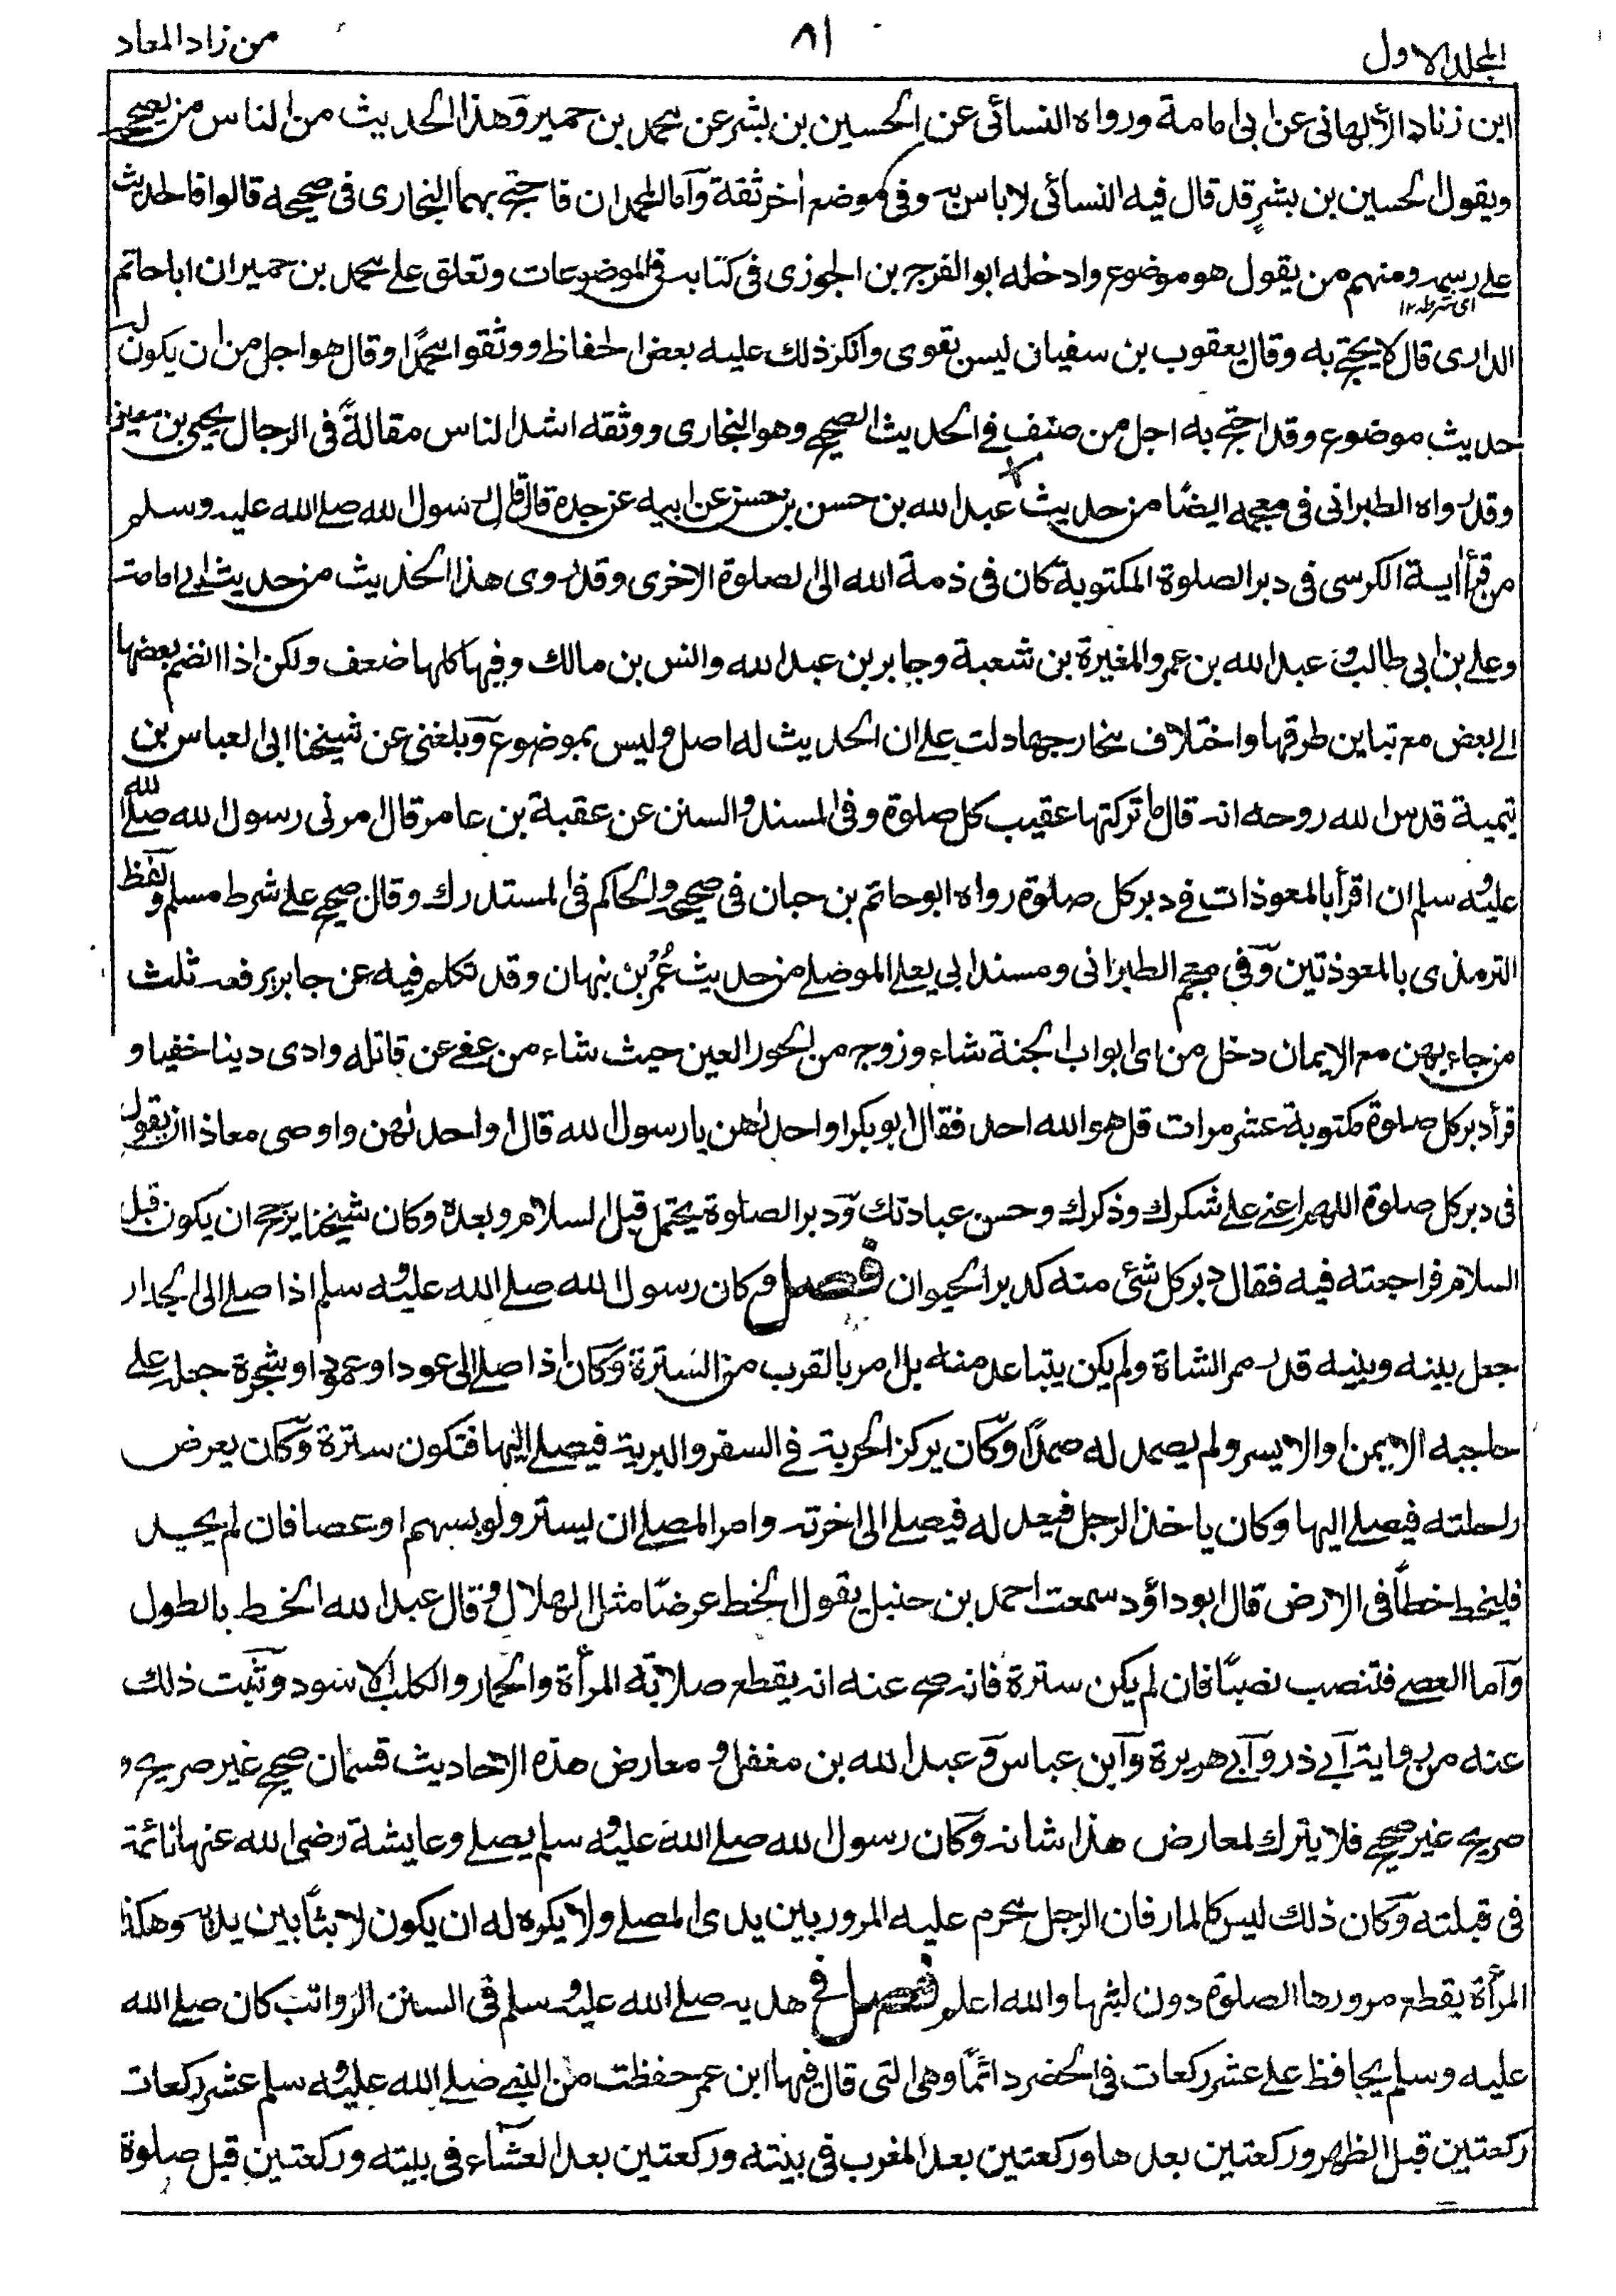 المجلد الاول ٨١ من زاد المعاد
ابن زناد الألهانى عن ابى امامة ورواه النسائى عن الحسين بن بشر عن محمد بن حمير وهذا الحديث من الناس من يصححه
ويقول الحسين بن بشر قد قال فيه النسائى لا باس به وفى موضع اخر ثقة وأما المحمدان فاحتج بهما البخارى فى صحيحه قالوا فالحديث
على رسمه ومنهم من يقول هو موضوع وادخله ابو الفرج بن الجوزى فى كتابه فى الموضوعات وتعلق على محمد بن حمير ان ابا حاتم
اى شرطه ١٢
الدارى قال لا يحتج به وقال يعقوب بن سفيان ليس بقوى وانكر ذلك عليه بعض الحفاظ ووثقوا محمدًا وقال هو اجل من ان يكون له
حديث موضوع وقد احتج به اجل من صنف فى الحديث الصحيح وهو البخارى ووثقه اشد الناس مقالةً فى الرجال يحيى بن معين
وقد رواه الطبرانى فى معجمه ايضًا من حديث عبد الله بن حسن بن حسن عن ابيه عن جده قال قال رسول الله صلى الله عليه وسلم
من قرأ أية الكرسى فى دبر الصلوة المكتوبة كان فى ذمة الله الى الصلوة الاخرى وقد روى هذا الحديث من حديث ابى امامة
وعلى بن ابى طالب وعبد الله بن عمر والمغيرة بن شعبة وجابر بن عبد الله وانس بن مالك وفيها كلها ضعف ولكن اذا انضم بعضها
الى بعض مع تباين طرقها واختلاف مخارجها دلت على ان الحديث له اصل وليس بموضوع وبلغنى عن شيخنا ابى العباس بن
تيمية قدس الله روحه انه قال ما تركتها عقيب كل صلوة وفى المسند والسنن عن عقبة بن عامر قال امرنى رسول الله صلى الله
عليه وسلم ان اقرأ بالمعوذات فى دبر كل صلوة رواه ابو حاتم بن حبان فى صحيحه والحاكم فى المستدرك وقال صحيح على شرط مسلم ولفظ
الترمذى بالمعوذتين وفى معجم الطبرانى ومسند ابى يعلى الموصلى من حديث عُمَر بن نبهان وقد تكلم فيه عن جابر يرفعه ثلث
من جاء بهن مع الايمان دخل من اى ابواب الجنة شاء وزوج من الحور العين حيث شاء من عفى عن قاتله وادى دينا خفيا و
قرأ دبر كل صلوة مكتوبة عشر مرات قل هو الله احد فقال ابو بكر او احدٰهن يا رسول الله قال او احدٰهن واوصى معاذا ان يقول
فى دبر كل صلوة اللهم اعنى على شكرك وذكرك وحسن عبادتك ودبر الصلوة يحتمل قبل السلام وبعده وكان شيخنا يرجح ان يكون قبل
السلام فراجعته فيه فقال دبر كل شئ منه كدبر الحيوان فصل وكان رسول الله صلى الله عليه وسلم اذا صلى الى الجدار
جعل بينه وبينه قدر ممر الشاة ولم يكن يتباعد منه بل امر بالقرب من السترة وكان اذا صلى الى عود او عمود او شجرة جعله على
حاجبه الايمن او الايسر ولم يصمد له صمدًا وكان يركز الحربة فى السفر والبرية فيصلى اليها فتكون سترة وكان يعرض
راحلته فيصلى اليها وكان ياخذ الرحل فيعدله فيصلى الى اخرته وامر المصلى ان يستتر ولو بسهم او عصا فان لم يجد
فليخط خطًا فى الارض قال ابو داؤد سمعت احمد بن حنبل يقول الخط عرضًا مثل الهلال وقال عبد الله الخط بالطول
وأما العصى فتنصب نصبًا فان لم يكن سترة فانه صح عنه انه يقطع صلاته المرأة والحمار والكلب الاسود وثبت ذلك
عنه من رواية أبى ذر وأبى هريرة وأبن عباس وعبد الله بن مغفل ومعارض هذه الاحاديث قسمان صحيح غير صريح و
صريح غير صحيح فلا يترك لمعارض هذا شانه وكان رسول الله صلى الله عليه وسلم يصلى وعايشة رضى الله عنها نائمة
فى قبلته وكان ذلك ليس كالمار فان الرجل محرم عليه المرور بين يدى المصلى ولا يكره له ان يكون لابثًا بين يديه وهكذا
المرأة يقطع مرورها الصلوة دون لبثها والله اعلم فصل فى هديه صلى الله عليه وسلم فى السنن الرواتب كان صلى الله
عليه وسلم يحافظ على عشر ركعات فى الحضر دائمًا وهى التى قال فيها ابن عمر حفظت من النبى صلى الله عليه وسلم عشر ركعات
ركعتين قبل الظهر وركعتين بعدها وركعتين بعد المغرب فى بيته وركعتين بعد العشاء فى بيته وركعتين قبل صلوة